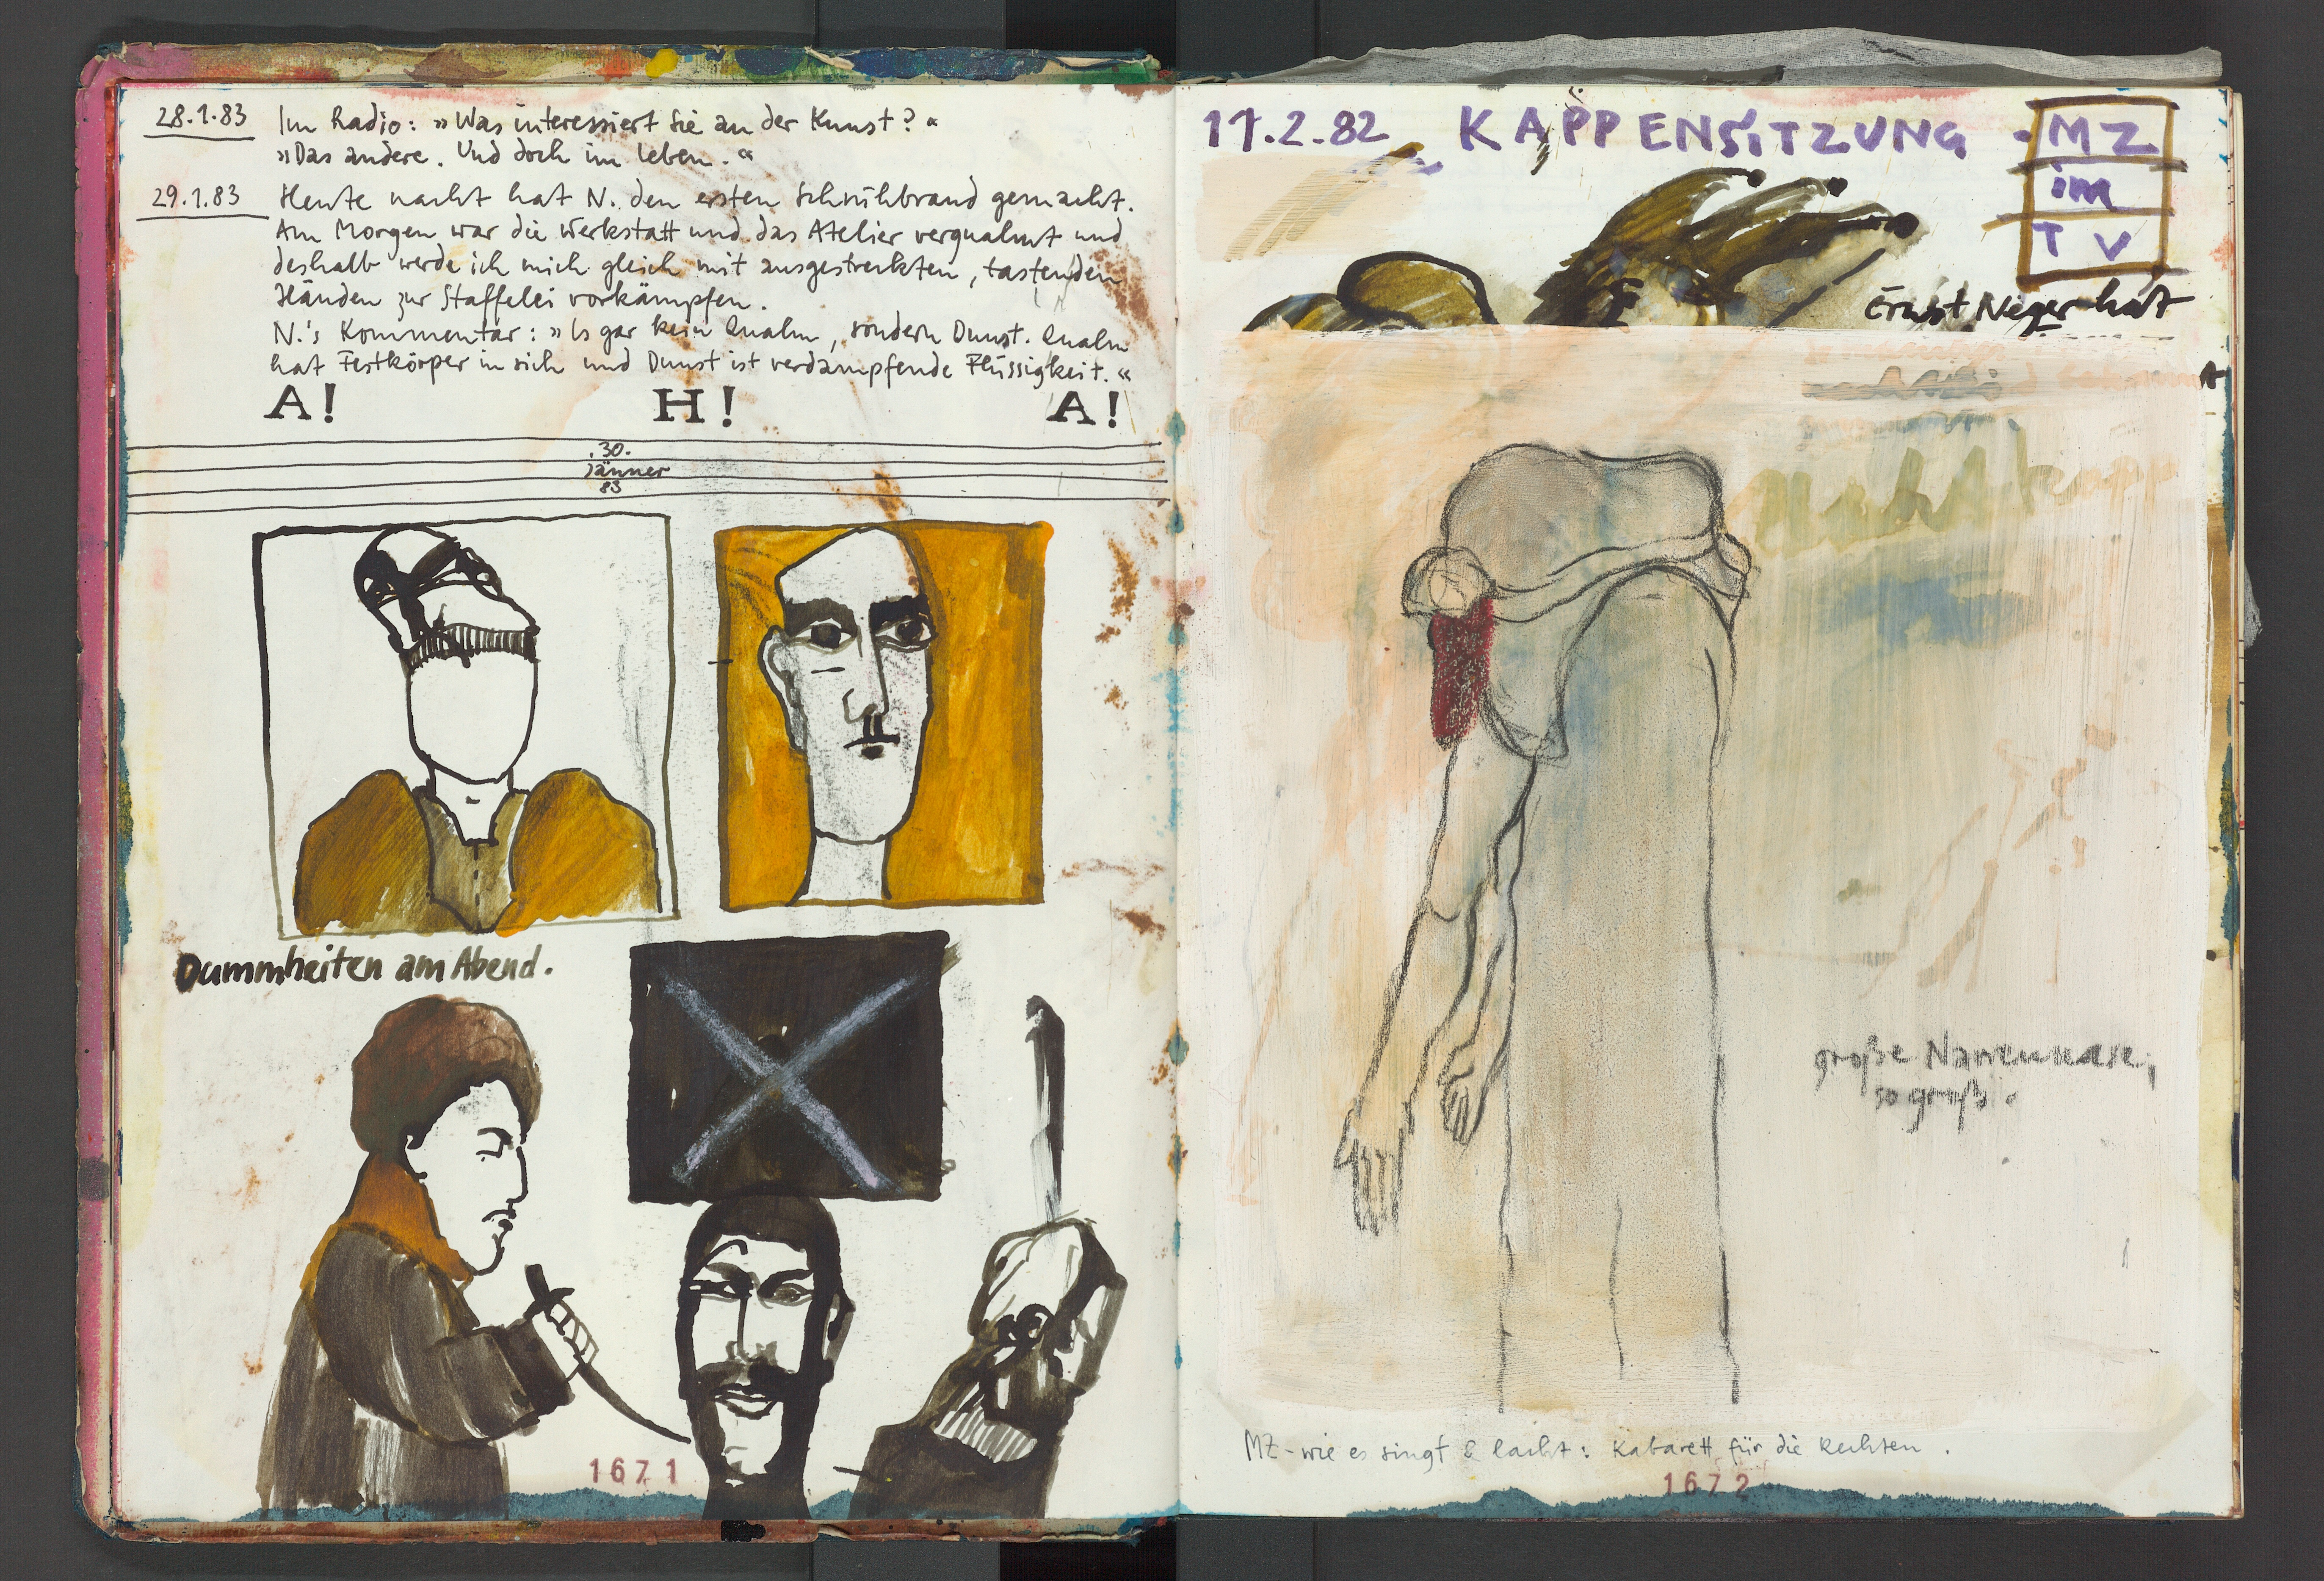 28.1.83 Im Radio: »Was interessiert Sie an der Kunst?«
»Das andere. Und doch im Leben.«
29.1.83 Heute nacht hat N. den ersten Schrühbrand gemacht.
Am Morgen war die Werkstatt und das Atelier verqualmt und
deshalb werde ich mich gleich mit ausgestreckten, tastenden
Händen zur Staffelei vorkämpfen.
N.'s Kommentar: »Is gar kein Qualm, sondern Dunst. Qualm
hat Festkörper in sich und Dunst ist verdampfende Flüssigkeit.«
A! H! A!
.30.
Jänner
83
Dummheiten am Abend.
1671
11.2.82 KAPPENSITZUNG - MZ
im
TV
Ernst Neger hat
große Narrennase,
so groß.
MZ - wie es singt & lacht: Kabarett für die Rechten.
1672